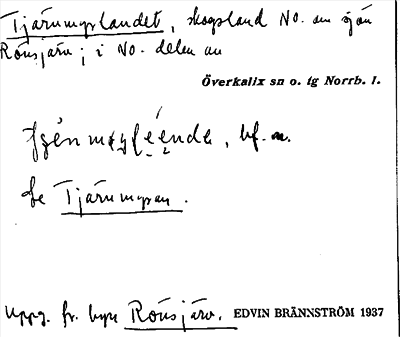 Tjärnmyrlandet, skogsland NO. om sjön
Rönsjärv; i NO. delen av
Överkalix sn o. tg Norrb. l.
bf. n.
Se Tjärnmyran.
Uppg. fr. byn Rönsjärv. EDVIN BRÄNNSTRÖM 1937